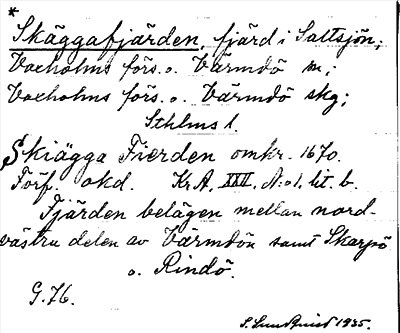 *
Skäggafjärden, fjärd i Saltsjön;
Vaxholms förs. o. Värmdö sn;
Vaxholms förs. o. Värmdö skg;
Sthlms l.
Skiägga Fierden omkr. 1670.
Förf. okd. Kr A. XXII, A:o 1, lit. b.
Fjärden belägen mellan nord-
västra delen av Värmdön samt Skarpö
o. Rindö.
G. 76.
S. Sundquist 1935.